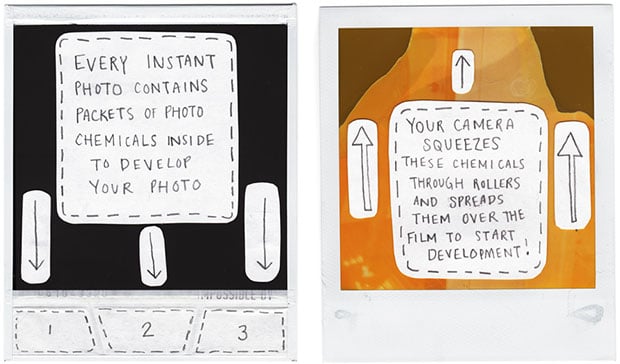 EVERY INSTANT
PHOTO CONTAINS
PACKETS OF PHOTO
CHEMICALS INSIDE
TO DEVELOP
YOUR PHOTO
1
2
3
YOUR CAMERA
SQUEEZES
THESE CHEMICALS
THROUGH ROLLERS
AND SPREADS
THEM OVER THE
FILM TO START
DEVELOPMENT!